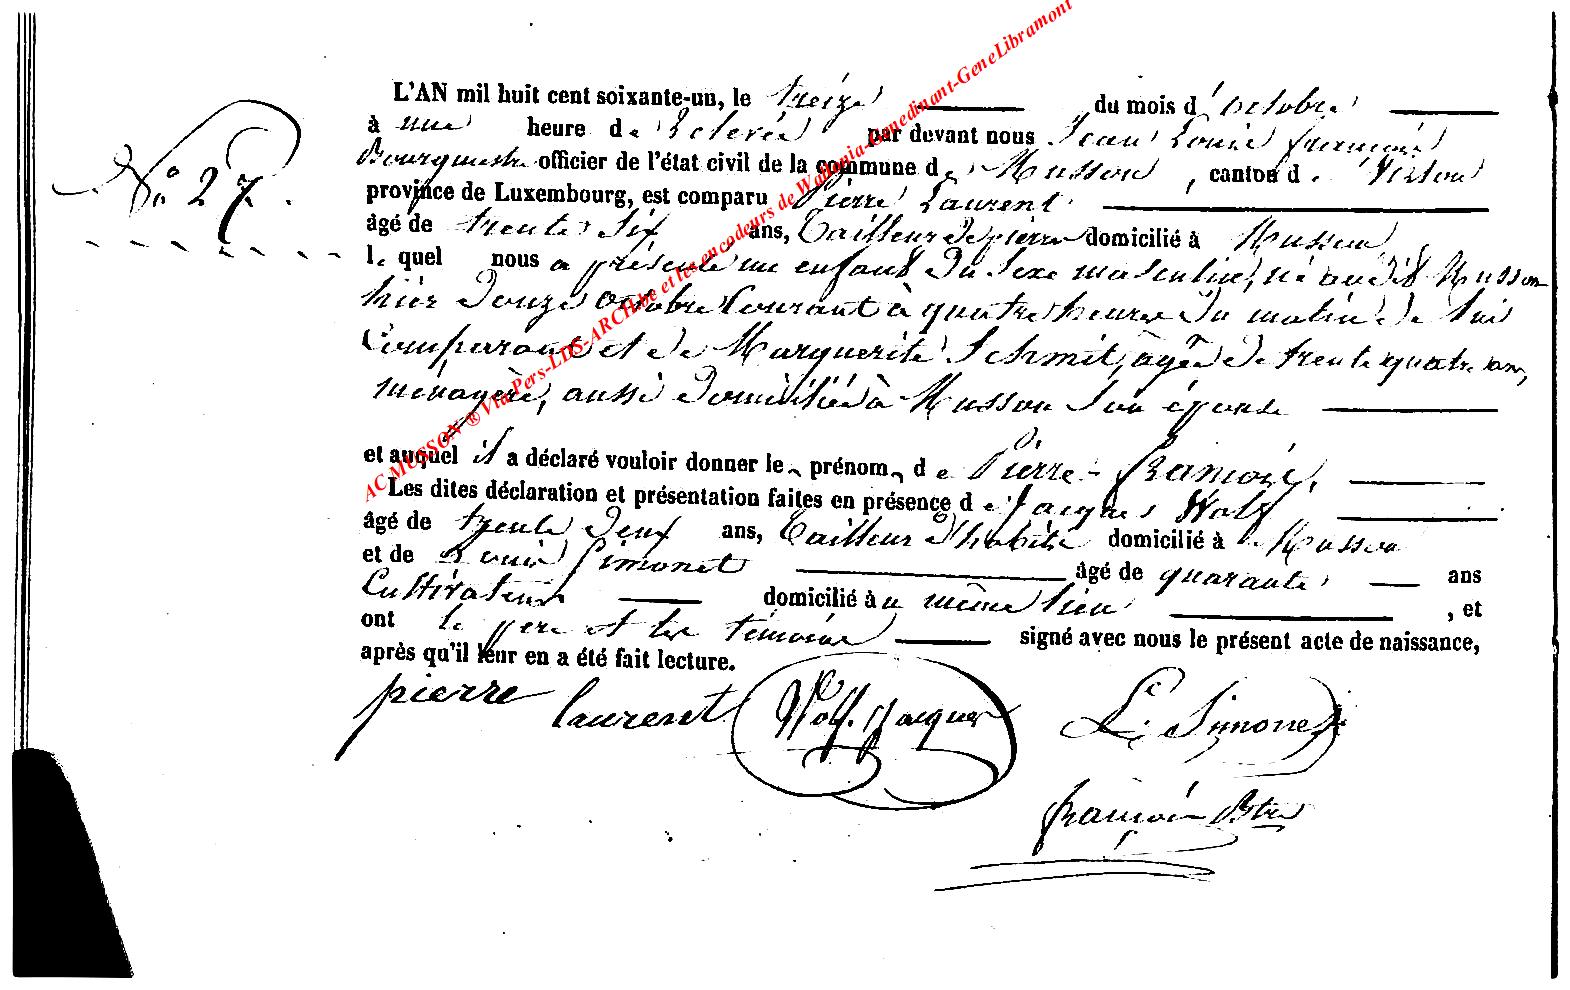 L'AN mil huit cent soixante-un, le treize du mois d'octobre
à une heure de relevée par devant nous Jean Louis françois
Bourgmestre officier de l'état civil de la commune de Musson, canton de Virton
province de Luxembourg, est comparu Pierre Laurent
âgé de trente six ans, Tailleur de pierre domicilié à Musson
N° 27.
le quel nous a présenté un enfant du sexe masculin, né audit Musson
hier douze octobre Courant à quatre heures du matin de lui
Comparant et de Marguerite Schmit, agée de trente quatre ans,
ménagère, aussi domiciliée à Musson son épouse
et auquel il a déclaré vouloir donner le prénom de Pierre-françois,
Les dites déclaration et présentation faites en présence de Jacques Wolf
âgé de trente deux ans, Tailleur d'habits domicilié à Musson
et de Louis Simonet âgé de quarante ans
Cultivateur domicilié au même lieu, et
ont le père et les témoins signé avec nous le présent acte de naissance,
après qu'il leur en a été fait lecture.
pierre laurent Wolf. Jacques L. Simonet
françois Btre
AC MUSSON ® Via Pers-LDS-ARCH.be et les encodeurs de Wallonia-Genedinant-GeneLibramont